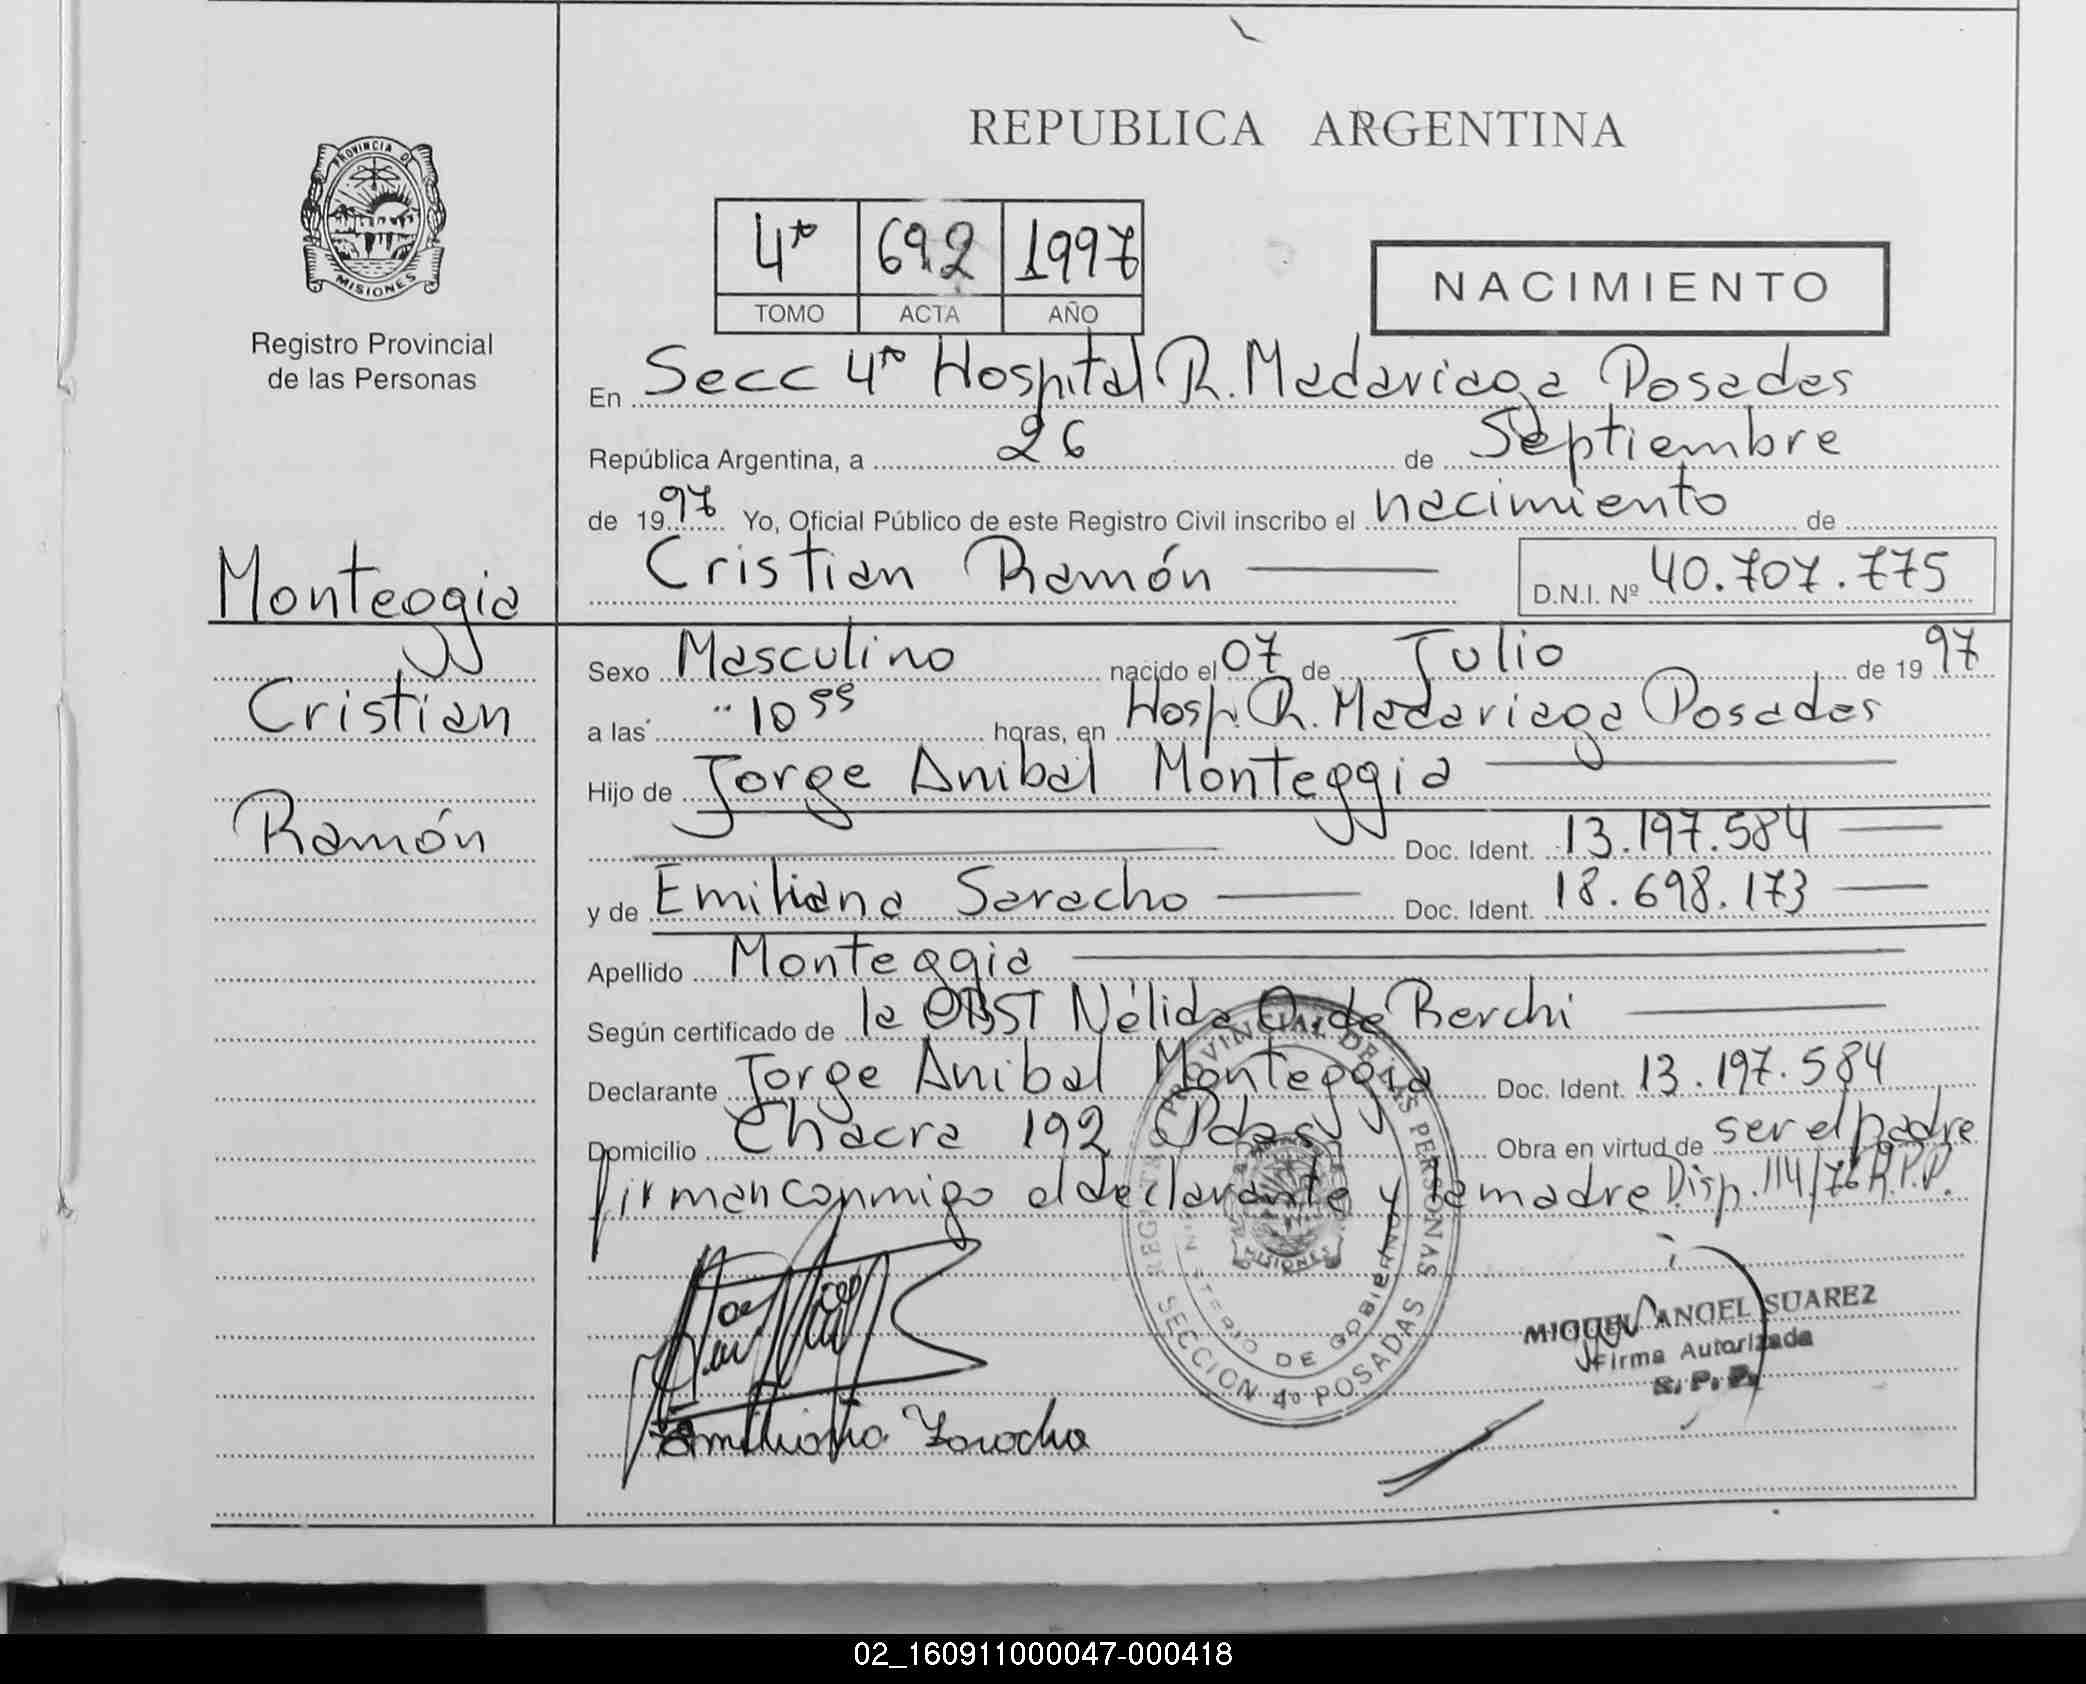 PROVINCIA DE
MISIONES
Registro Provincial
de las Personas
Monteggia
Cristian
Ramón
REPUBLICA ARGENTINA
4to 692 1997
TOMO ACTA AÑO
NACIMIENTO
En Secc 4ta Hospital R. Madariaga Posadas
República Argentina, a 26 de Septiembre
de 1997 Yo, Oficial Público de este Registro Civil inscribo el nacimiento de
Cristian Ramón D.N.I. Nº 40.707.775
Sexo Masculino nacido el 07 de Julio de 1997
a las 10 55 horas, en Hosp. R. Madariaga Posadas
Hijo de Jorge Anibal Monteggia
Doc. Ident. 13.197.584
y de Emiliana Saracho Doc. Ident. 18.698.173
Apellido Monteggia
Según certificado de la OBST Nélida O. de Berchi
Declarante Jorge Anibal Monteggia Doc. Ident. 13.197.584
Domicilio Chacra 192 Pdas Obra en virtud de ser el padre
firman conmigo el declarante y la madre Disp. 114/76 R.P.P.
REGISTRO PROVINCIAL DE LAS PERSONAS
MINISTERIO DE GOBIERNO
MISIONES
SECCION 4º POSADAS
MIGUEL ANGEL SUAREZ
Firma Autorizada
R. P. P.
Emiliana Zaracho
02_160911000047-000418